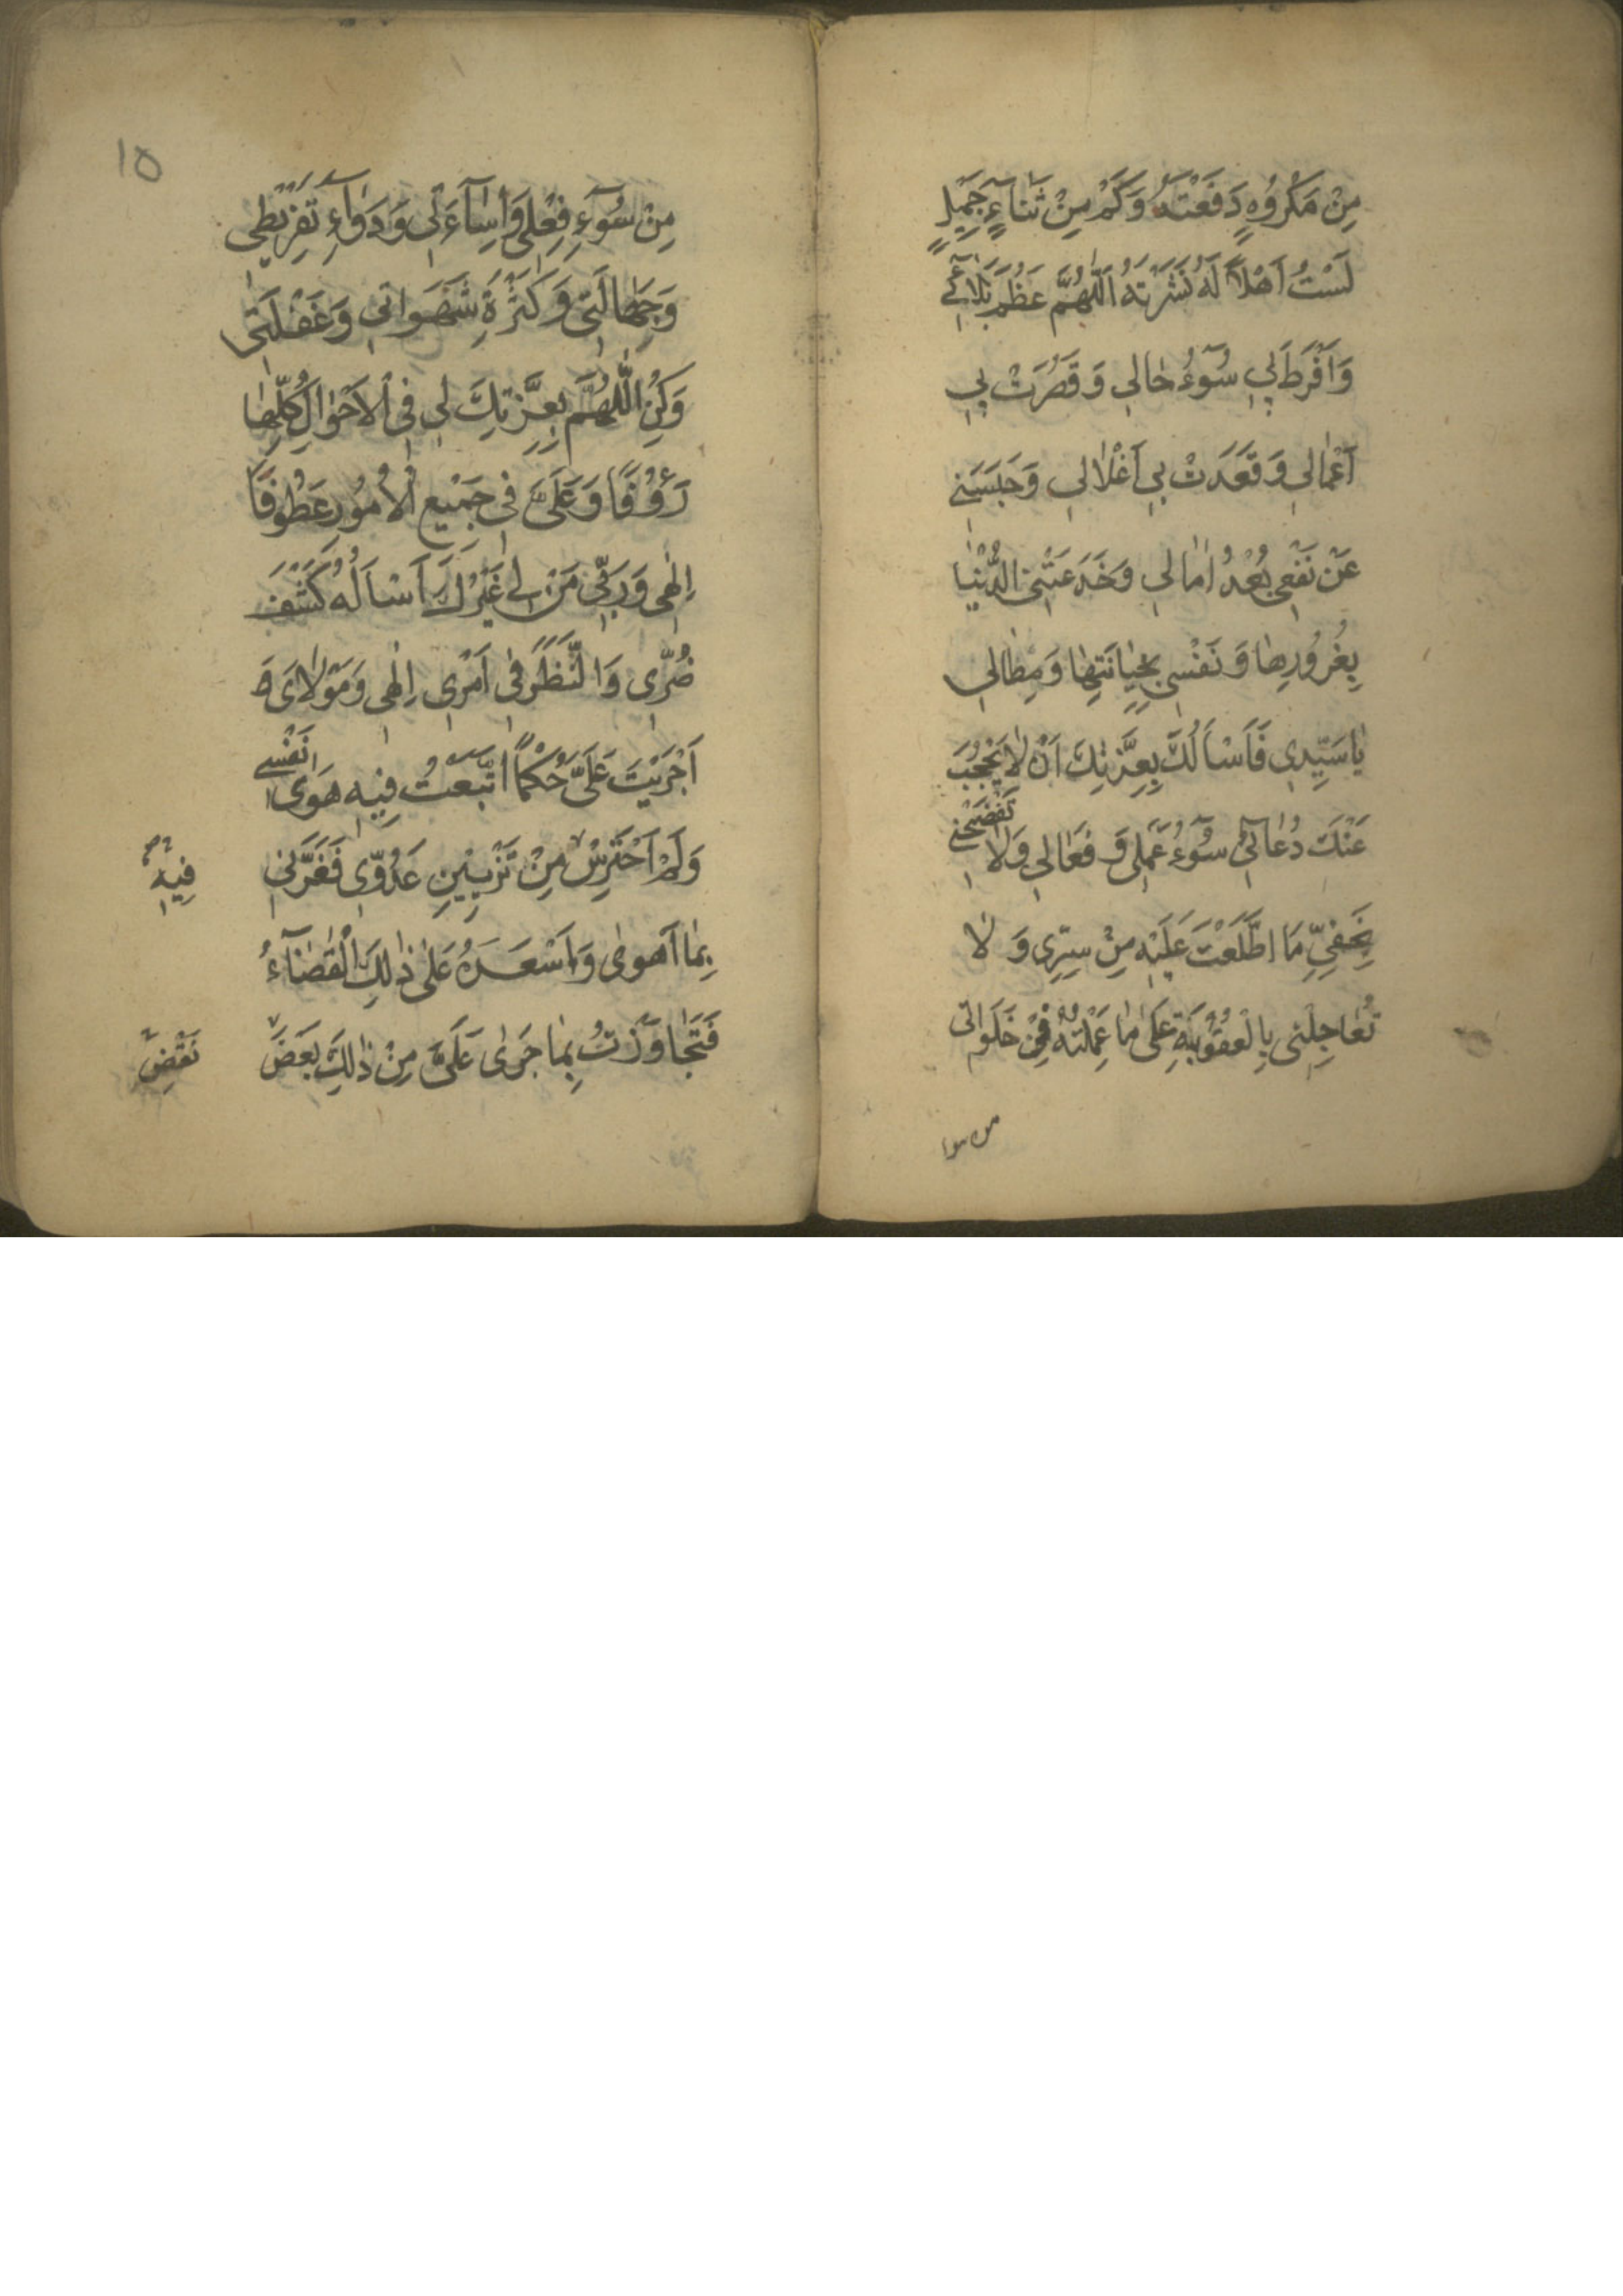 مِنْ مَكْرُوُهٍ دَفَعْتَهُ وَكَمْ مِنْ ثَنَاءٍ جَمِيلٍ
لَسْتُ اَهْلاً لَهُ نَشَرْتَهُ اَللّٰهُمَّ عَظُمَ بَلاٰئِي
وَاَفْرَطَ بِي سُوۤءُ حٰالِي وَقَصُرَتْ بِي
اَعْمٰالِي وَقَعَدَتْ بِي اَغْلاٰلِي وَحَبَسَنِي
عَنْ نَفْعِي بُعْدُ اٰمٰالِي وَخَدَعَتْنِي الدُّنْيٰا
بِغُرُورِهٰا وَنَفْسِي بِخِيٰانَتِهٰا وَمِطٰالِي
يٰا سَيِّدِي فَاَسْاَلُكَ بِعِزَّتِكَ اَنْ لاٰ يَحْجُبَ
عَنْكَ دُعٰائِي سُوۤءُ عَمَلِي وَفِعٰالِي وَلاٰ تَفْضَحْنِي
بِخَفِيِّ مَا اطَّلَعْتَ عَلَيْهِ مِنْ سِرِّي وَلاٰ
تُعٰاجِلْنِي بِالْعُقُوبَةِ عَلَى مٰا عَمِلْتُهُ فِي خَلَوٰاتِي
من سوء
١٥
مِنْ سُوۤءِ فِعْلِي وَاِسٰاۤءَتِي وَدَوٰامِ تَفْرِيطِي
وَجَهٰالَتِي وَكَثْرَةِ شَهَوٰاتِي وَغَفْلَتِي
وَكُنِ اللّٰهُمَّ بِعِزَّتِكَ لِي فِي الْاَحْوٰالِ كُلِّهٰا
رَؤُوفًا وَعَلَيَّ فِي جَمِيْعِ الْاُمُورِ عَطُوفًا
اِلٰهِي وَرَبِّي مَنْ لِي غَيْرُكَ اَسْاَلُهُ كَشْفَ
ضُرِّي وَالنَّظَرَ فِي اَمْرِي اِلٰهِي وَمَوْلاٰيَ
اَجْرَيْتَ عَلَيَّ حُكْمًا اتَّبَعْتُ فِيهِ هَوٰى نَفْسِي
وَلَمْ اَحْتَرِسْ مِنْ تَزْيِينِ عَدُوِّي فَغَرَّنِي
فِيهِ
بِمٰا اَهْوٰى وَاَسْعَدَهُ عَلٰى ذٰلِكَ الْقَضٰاۤءُ
فَتَجٰاوَزْتُ بِمٰا جَرٰى عَلَيَّ مِنْ ذٰلِكَ بَعْضَ
نَقْضِ